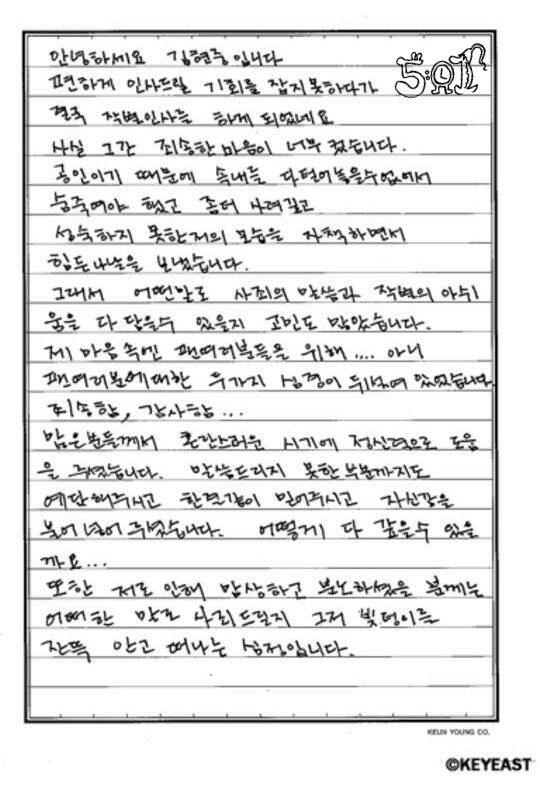 안녕하세요 김현중입니다
편하게 인사드릴 기회를 잡지못하다가
결국 작별인사를 하게 되었네요
사실 그간 죄송한 마음이 너무 컸습니다.
공인이기 때문에 속내를 다 털어놓을수없에서
숨죽여야 했고 좀더 사려깊고
성숙하지 못한저의 모습을 자책하면서
힘든나날을 보냈습니다.
그래서 어떤말로 사죄의 말씀과 작별의 아쉬
움을 다 담을수 있을지 고민도 많았습니다.
제 마음속엔 팬여러분들을 위해.... 아니
팬여러분에대한 두가지 심경이 뒤섞여 있었습니다.
죄송함, 감사함...
많은분들께서 혼란스러운 시기에 정신력으로 도움
을 주셨습니다. 말씀드리지 못한 부분까지도
예단해주시고 한결같이 믿어주시고 자신감을
불어 넣어 주셨습니다. 어떻게 다 갚을수 있을
까요...
또한 저로 인해 맘상하고 분노하셨을 분께는
어떠한 말로 사죄드릴지 그저 빚덩이를
잔뜩 안고 떠나는 심정입니다.
KEUN YOUNG CO.
©KEYEAST